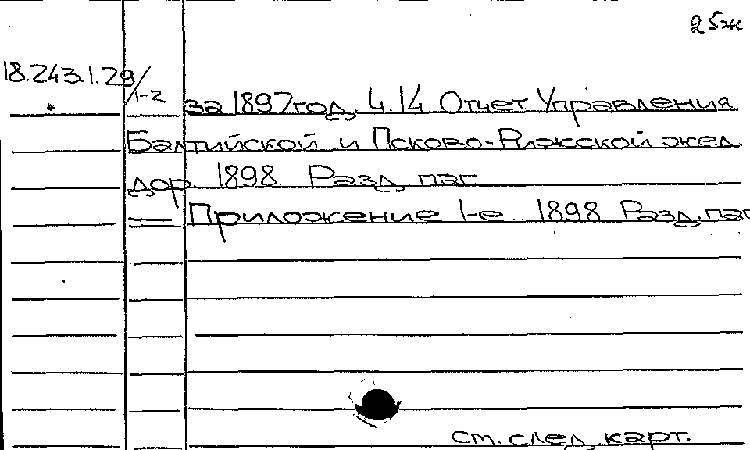 25ж
18.243.1.29/1-2
за 1897 год. Ч. 14 Отчет Управления
Балтийской и Псково-Рижской жел.
дор. 1898 Разд. паг.
— Приложение 1-е. 1898 Разд. паг
см. след. карт.